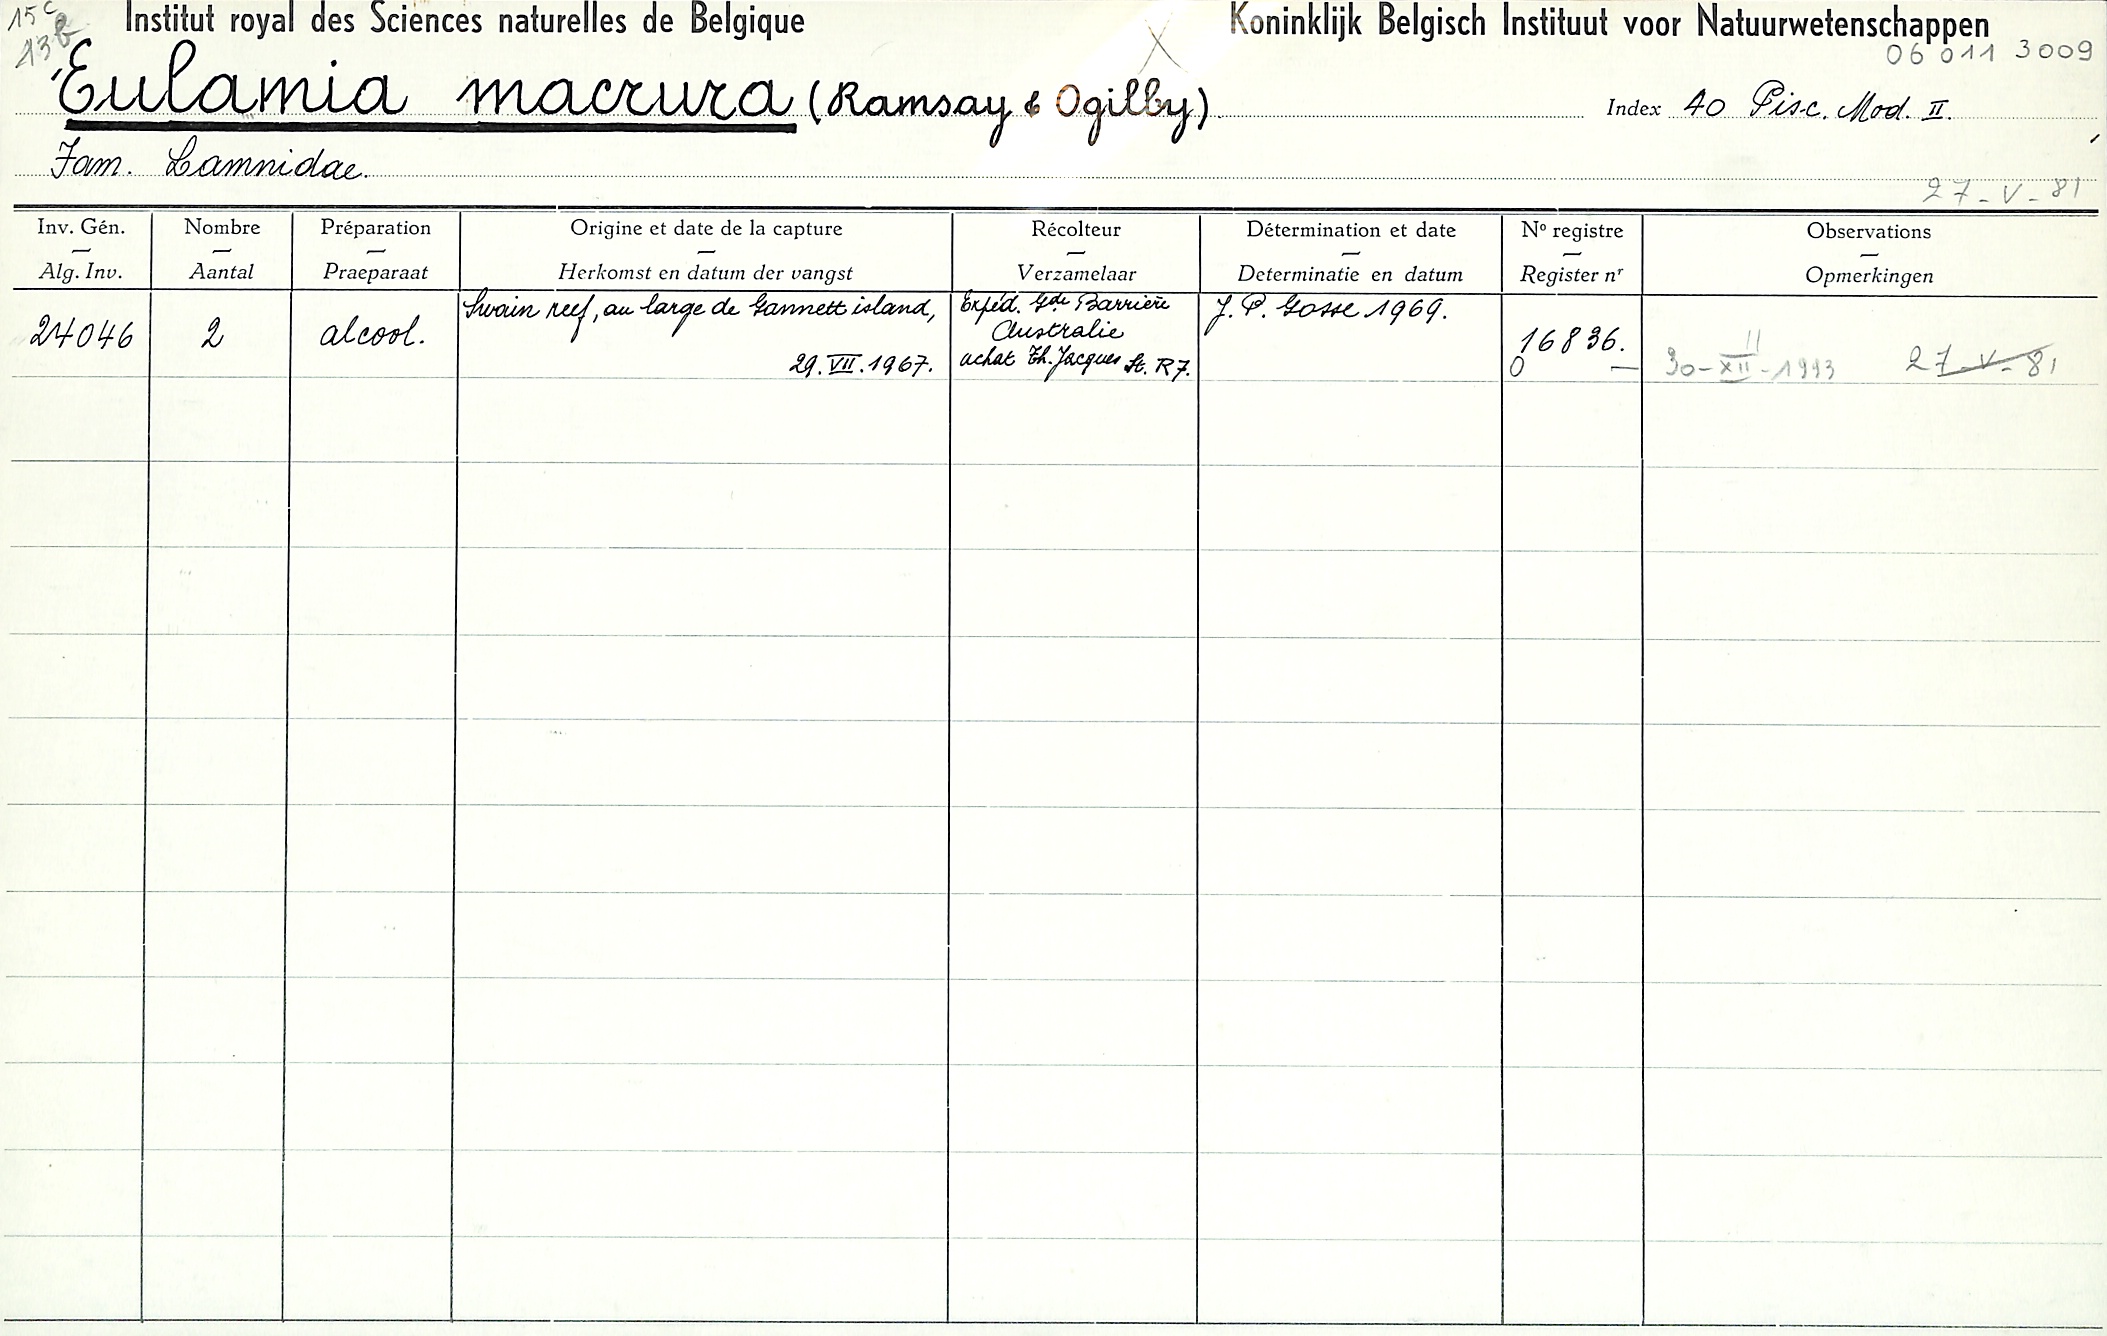 15c
13b
Institut royal des Sciences naturelles de Belgique
Koninklijk Belgisch Instituut voor Natuurwetenschappen
06 011 3009
Eulamia macrura (Ramsay & Ogilby)
Index 40 Pisc. Mod. II.
Fam. Lamnidae.
27-V-81
Inv. Gén. — Alg. Inv.
Nombre — Aantal
Préparation — Praeparaat
Origine et date de la capture — Herkomst en datum der vangst
Récolteur — Verzamelaar
Détermination et date — Determinatie en datum
Nº registre — Register nr
Observations — Opmerkingen
24046
2
alcool.
Swain reef, au large de Gannett island,
29.VII.1967.
Expéd. Gde Barrière
Australie
achat Th. Jacques St. R7.
J. P. Gosse 1969.
16836.
0 —
II
30-XII-1993
27-V-81